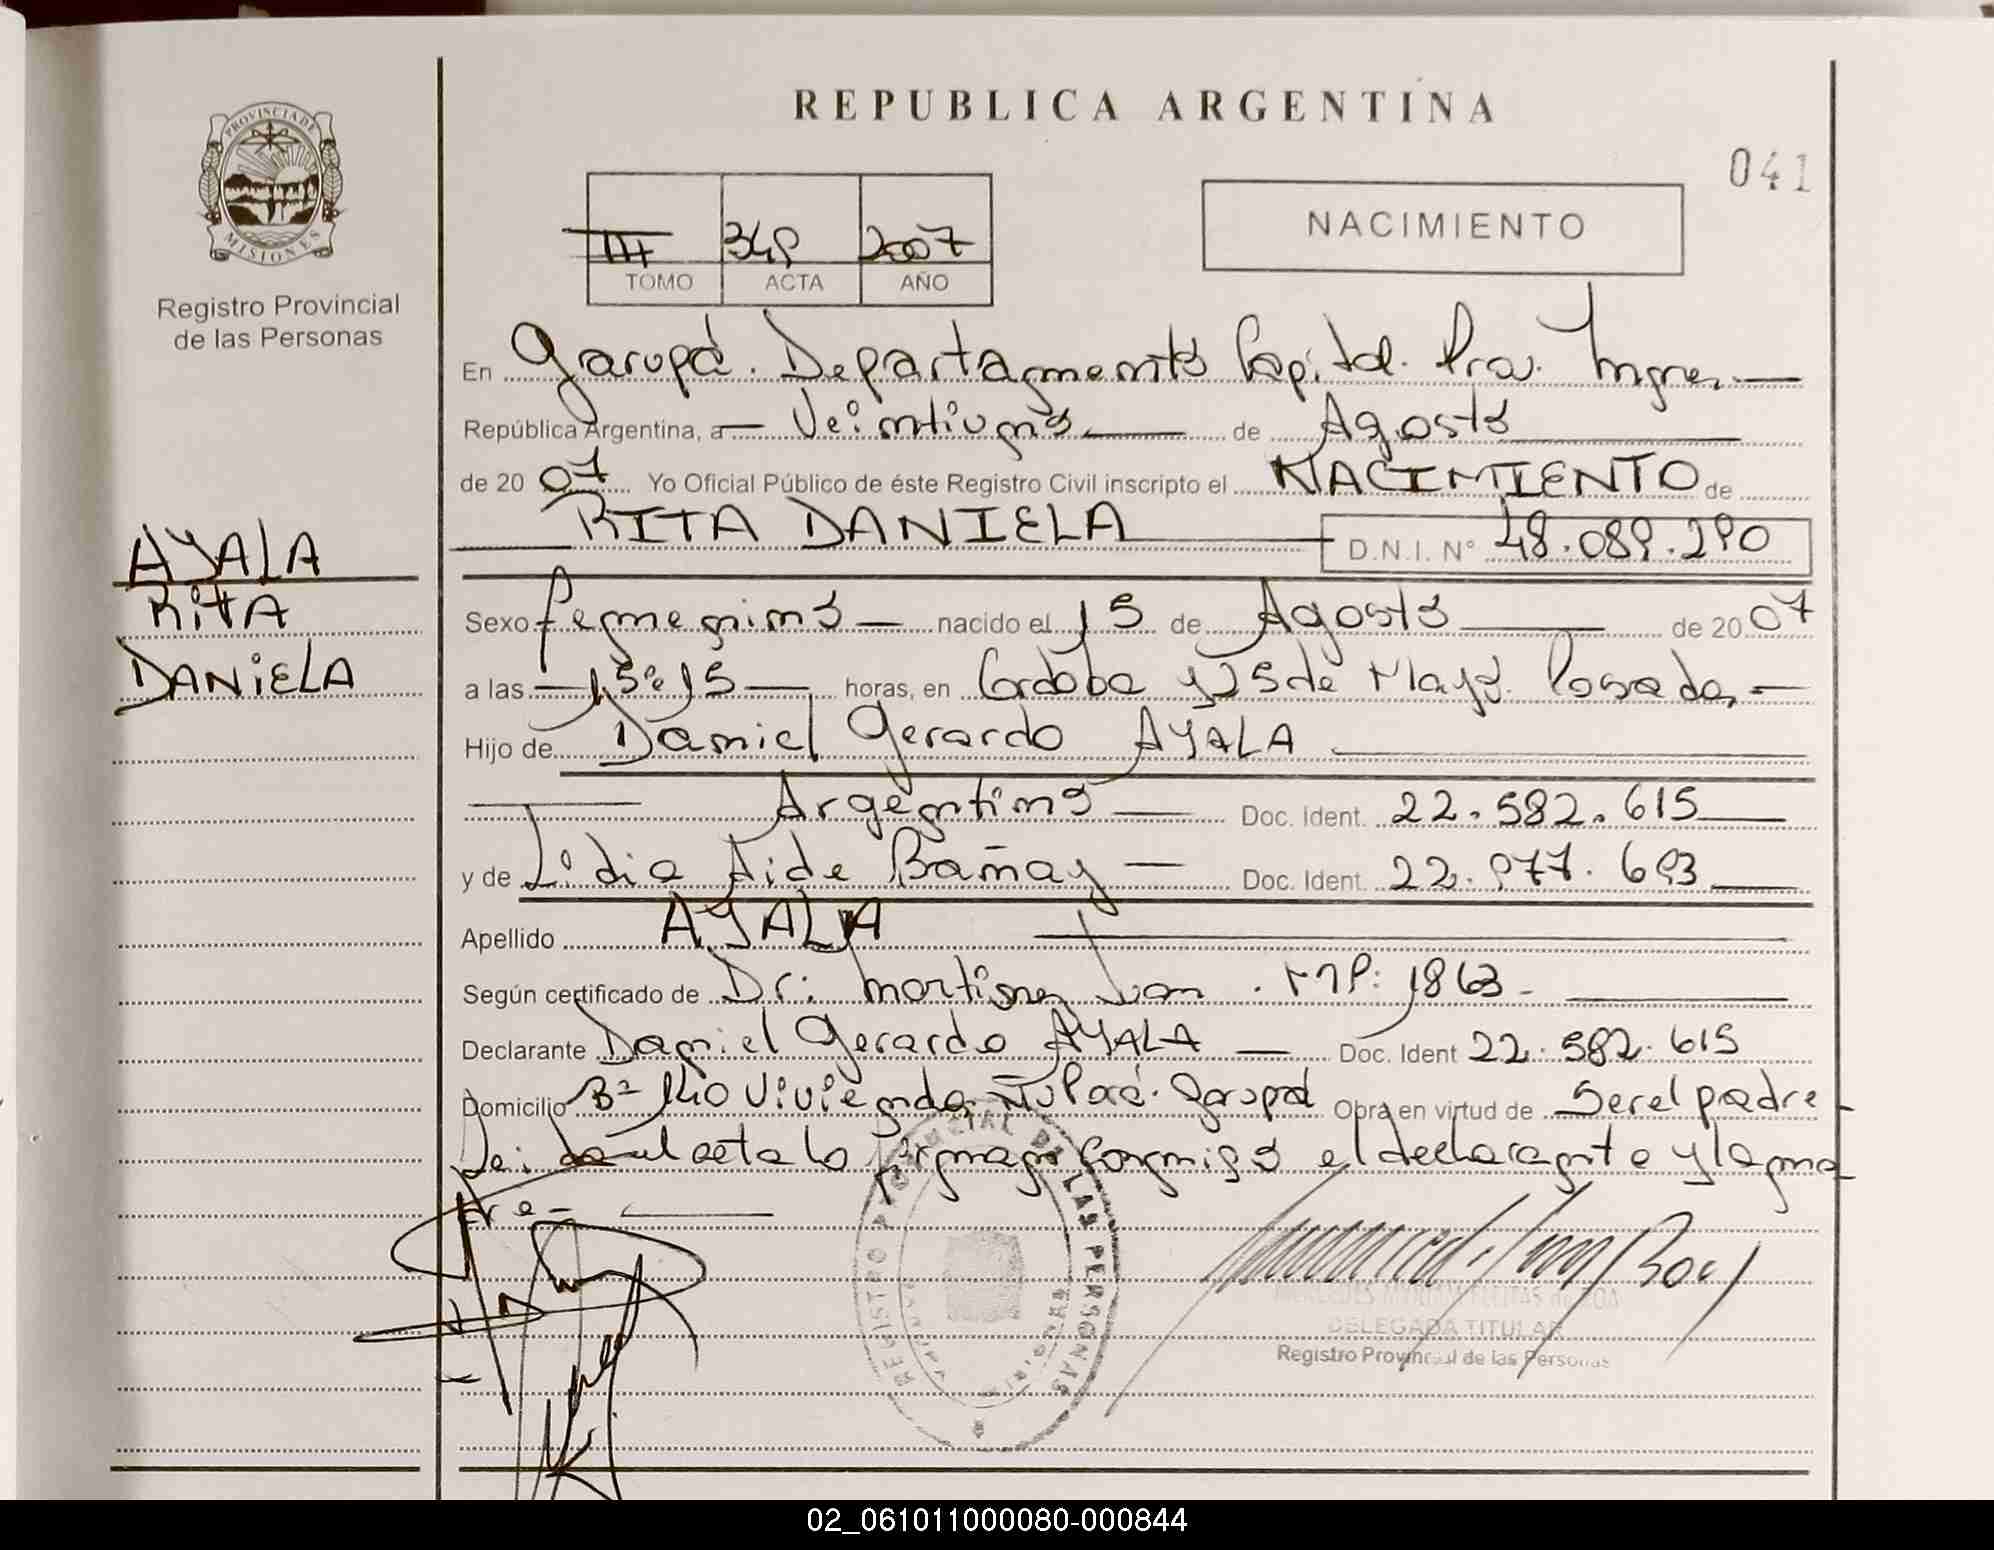 REPUBLICA ARGENTINA
041
PROVINCIA DE
MISIONES
Registro Provincial
de las Personas
III 349 2007
TOMO ACTA AÑO
NACIMIENTO
En Garupá. Departamento Capital. Prov. Mnes.
República Argentina, a Veintiuno de Agosto
de 20 07 Yo Oficial Público de éste Registro Civil inscripto el NACIMIENTO de
RITA DANIELA D.N.I. N° 48.089.290
AYALA
RITA
DANIELA
Sexo femenino nacido el 15 de Agosto de 20 07
a las 15:15 horas, en Cordoba y 25 de Mayo. Posadas
Hijo de Daniel Gerardo AYALA
Argentino Doc. Ident. 22.582.615
y de Lidia Aide Bañay Doc. Ident. 22.977.693
Apellido AYALA
Según certificado de Dr: Martinez Juan. MP: 1863
Declarante Daniel Gerardo AYALA Doc. Ident 22.582.615
Domicilio B° 140 Viviendas Garupá Obra en virtud de Ser el padre
Leida el acta lo firman conmigo el declarante y la ma
dre
REGISTRO PROVINCIAL DE LAS PERSONAS
DELEGADA TITULAR
Registro Provincial de las Personas
02_061011000080-000844